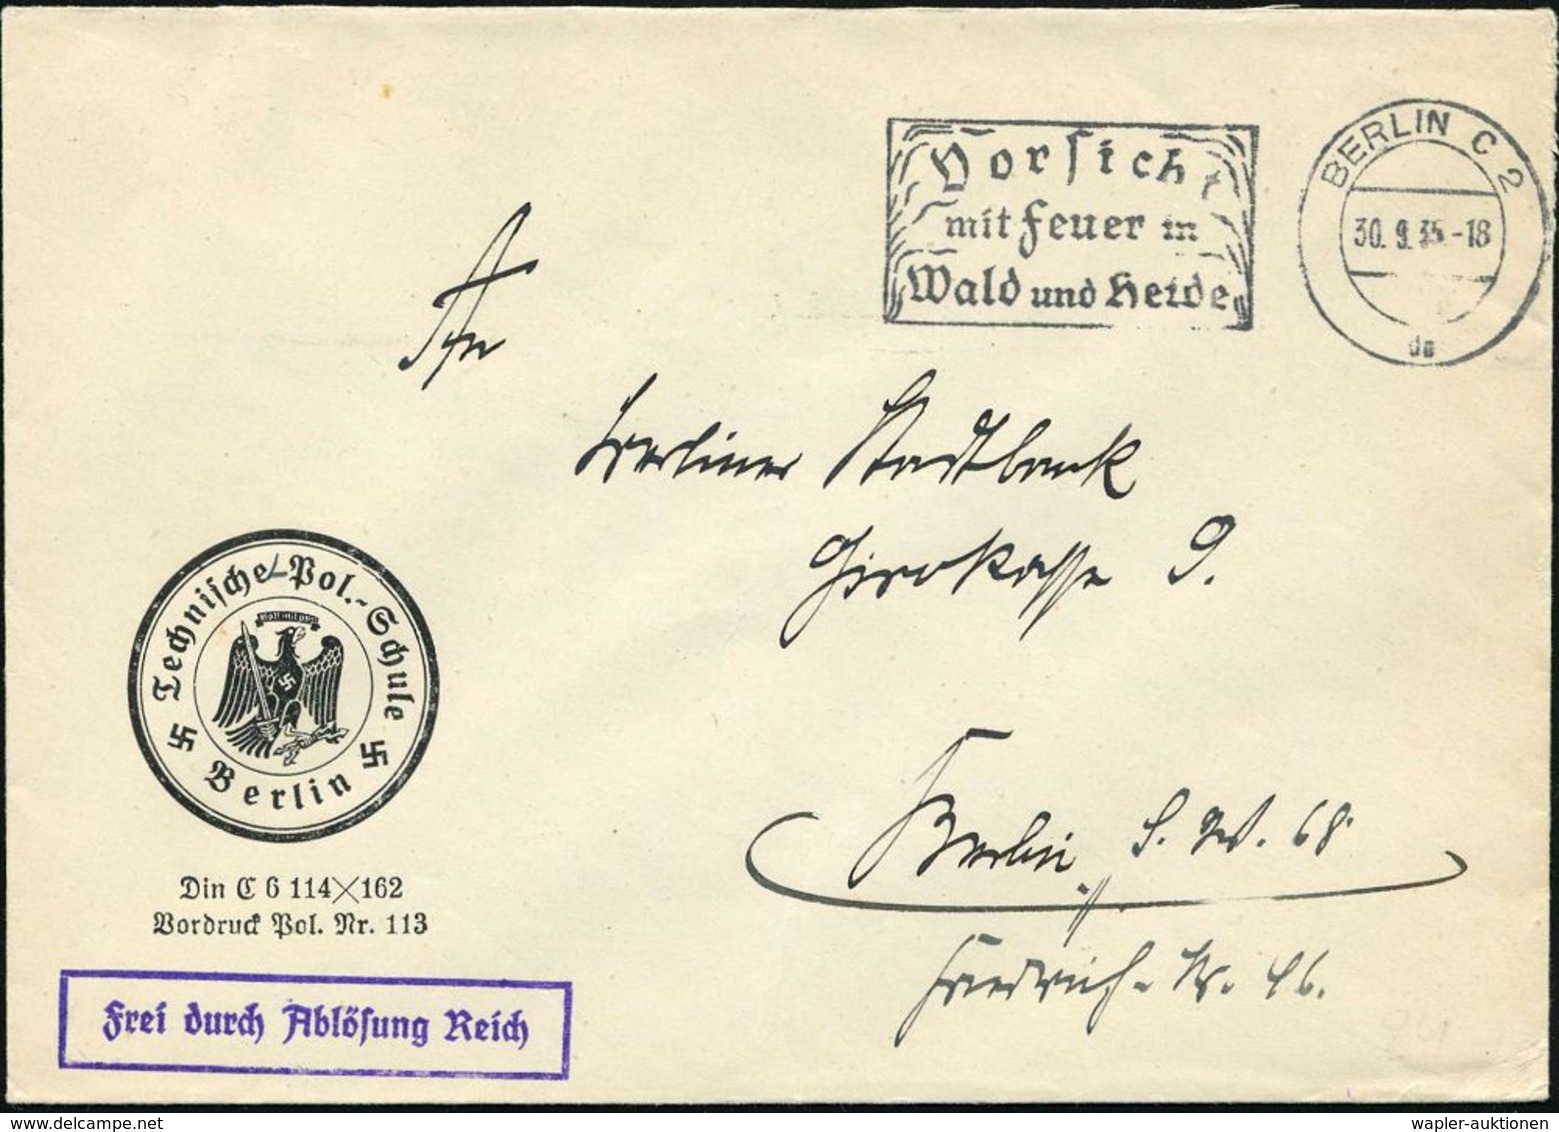 Vorsicht
mit Feuer in
Wald und Heide
BERLIN C 2
30. 9. 35 -18
da
An
Berliner Stadtbank
Girokasse 9.
Berlin S. W. 68
Friedrich-Str. 96.
Technische Pol.-Schule
Berlin
Din C 6 114×162
Vordruck Pol. Nr. 113
Frei durch Ablösung Reich
wapler-auktionen
delcampe.net